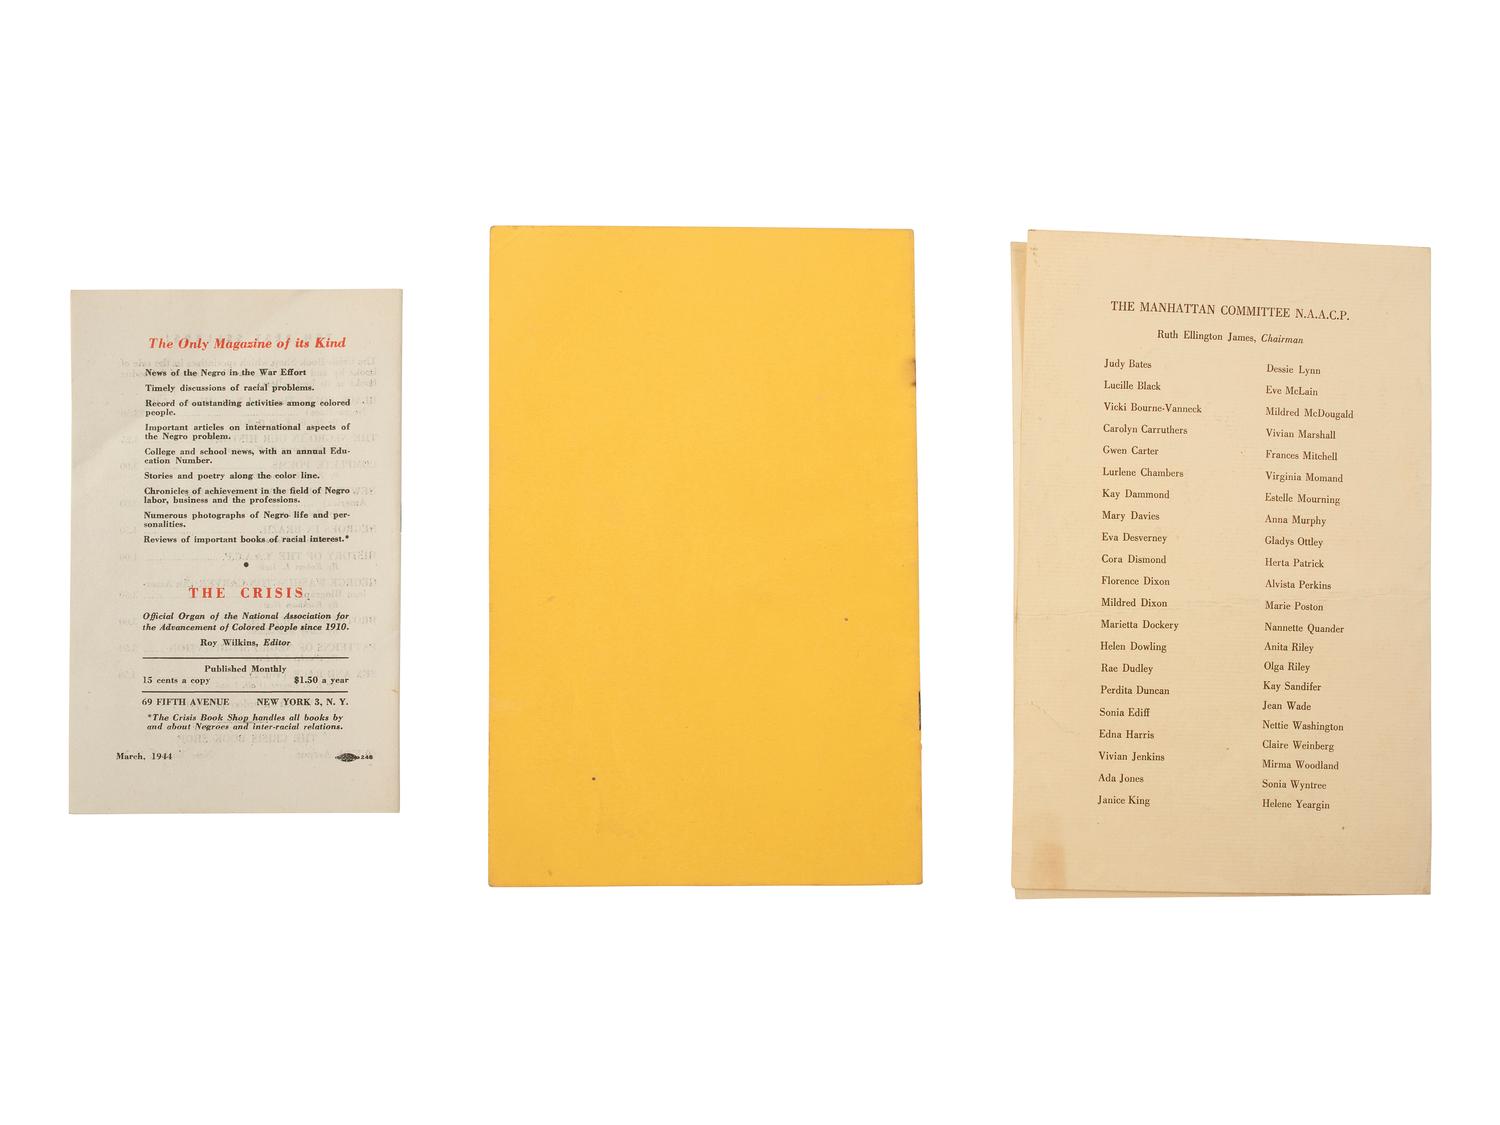 The Only Magazine of its Kind
News of the Negro in the War Effort
Timely discussions of racial problems.
Record of outstanding activities among colored
people.
Important articles on international aspects of
the Negro problem.
College and school news, with an annual Edu-
cation Number.
Stories and poetry along the color line.
Chronicles of achievement in the field of Negro
labor, business and the professions.
Numerous photographs of Negro life and per-
sonalities.
Reviews of important books of racial interest.*
THE CRISIS
Official Organ of the National Association for
the Advancement of Colored People since 1910.
Roy Wilkins, Editor
Published Monthly
15 cents a copy $1.50 a year
69 FIFTH AVENUE NEW YORK 3, N. Y.
*The Crisis Book Shop handles all books by
and about Negroes and inter-racial relations.
March, 1944 248
THE MANHATTAN COMMITTEE N.A.A.C.P.
Ruth Ellington James, Chairman
Judy Bates
Lucille Black
Vicki Bourne-Vanneck
Carolyn Carruthers
Gwen Carter
Lurlene Chambers
Kay Dammond
Mary Davies
Eva Desverney
Cora Dismond
Florence Dixon
Mildred Dixon
Marietta Dockery
Helen Dowling
Rae Dudley
Perdita Duncan
Sonia Ediff
Edna Harris
Vivian Jenkins
Ada Jones
Janice King
Dessie Lynn
Eve McLain
Mildred McDougald
Vivian Marshall
Frances Mitchell
Virginia Momand
Estelle Mourning
Anna Murphy
Gladys Ottley
Herta Patrick
Alvista Perkins
Marie Poston
Nannette Quander
Anita Riley
Olga Riley
Kay Sandifer
Jean Wade
Nettie Washington
Claire Weinberg
Mirma Woodland
Sonia Wyntree
Helene Yeargin